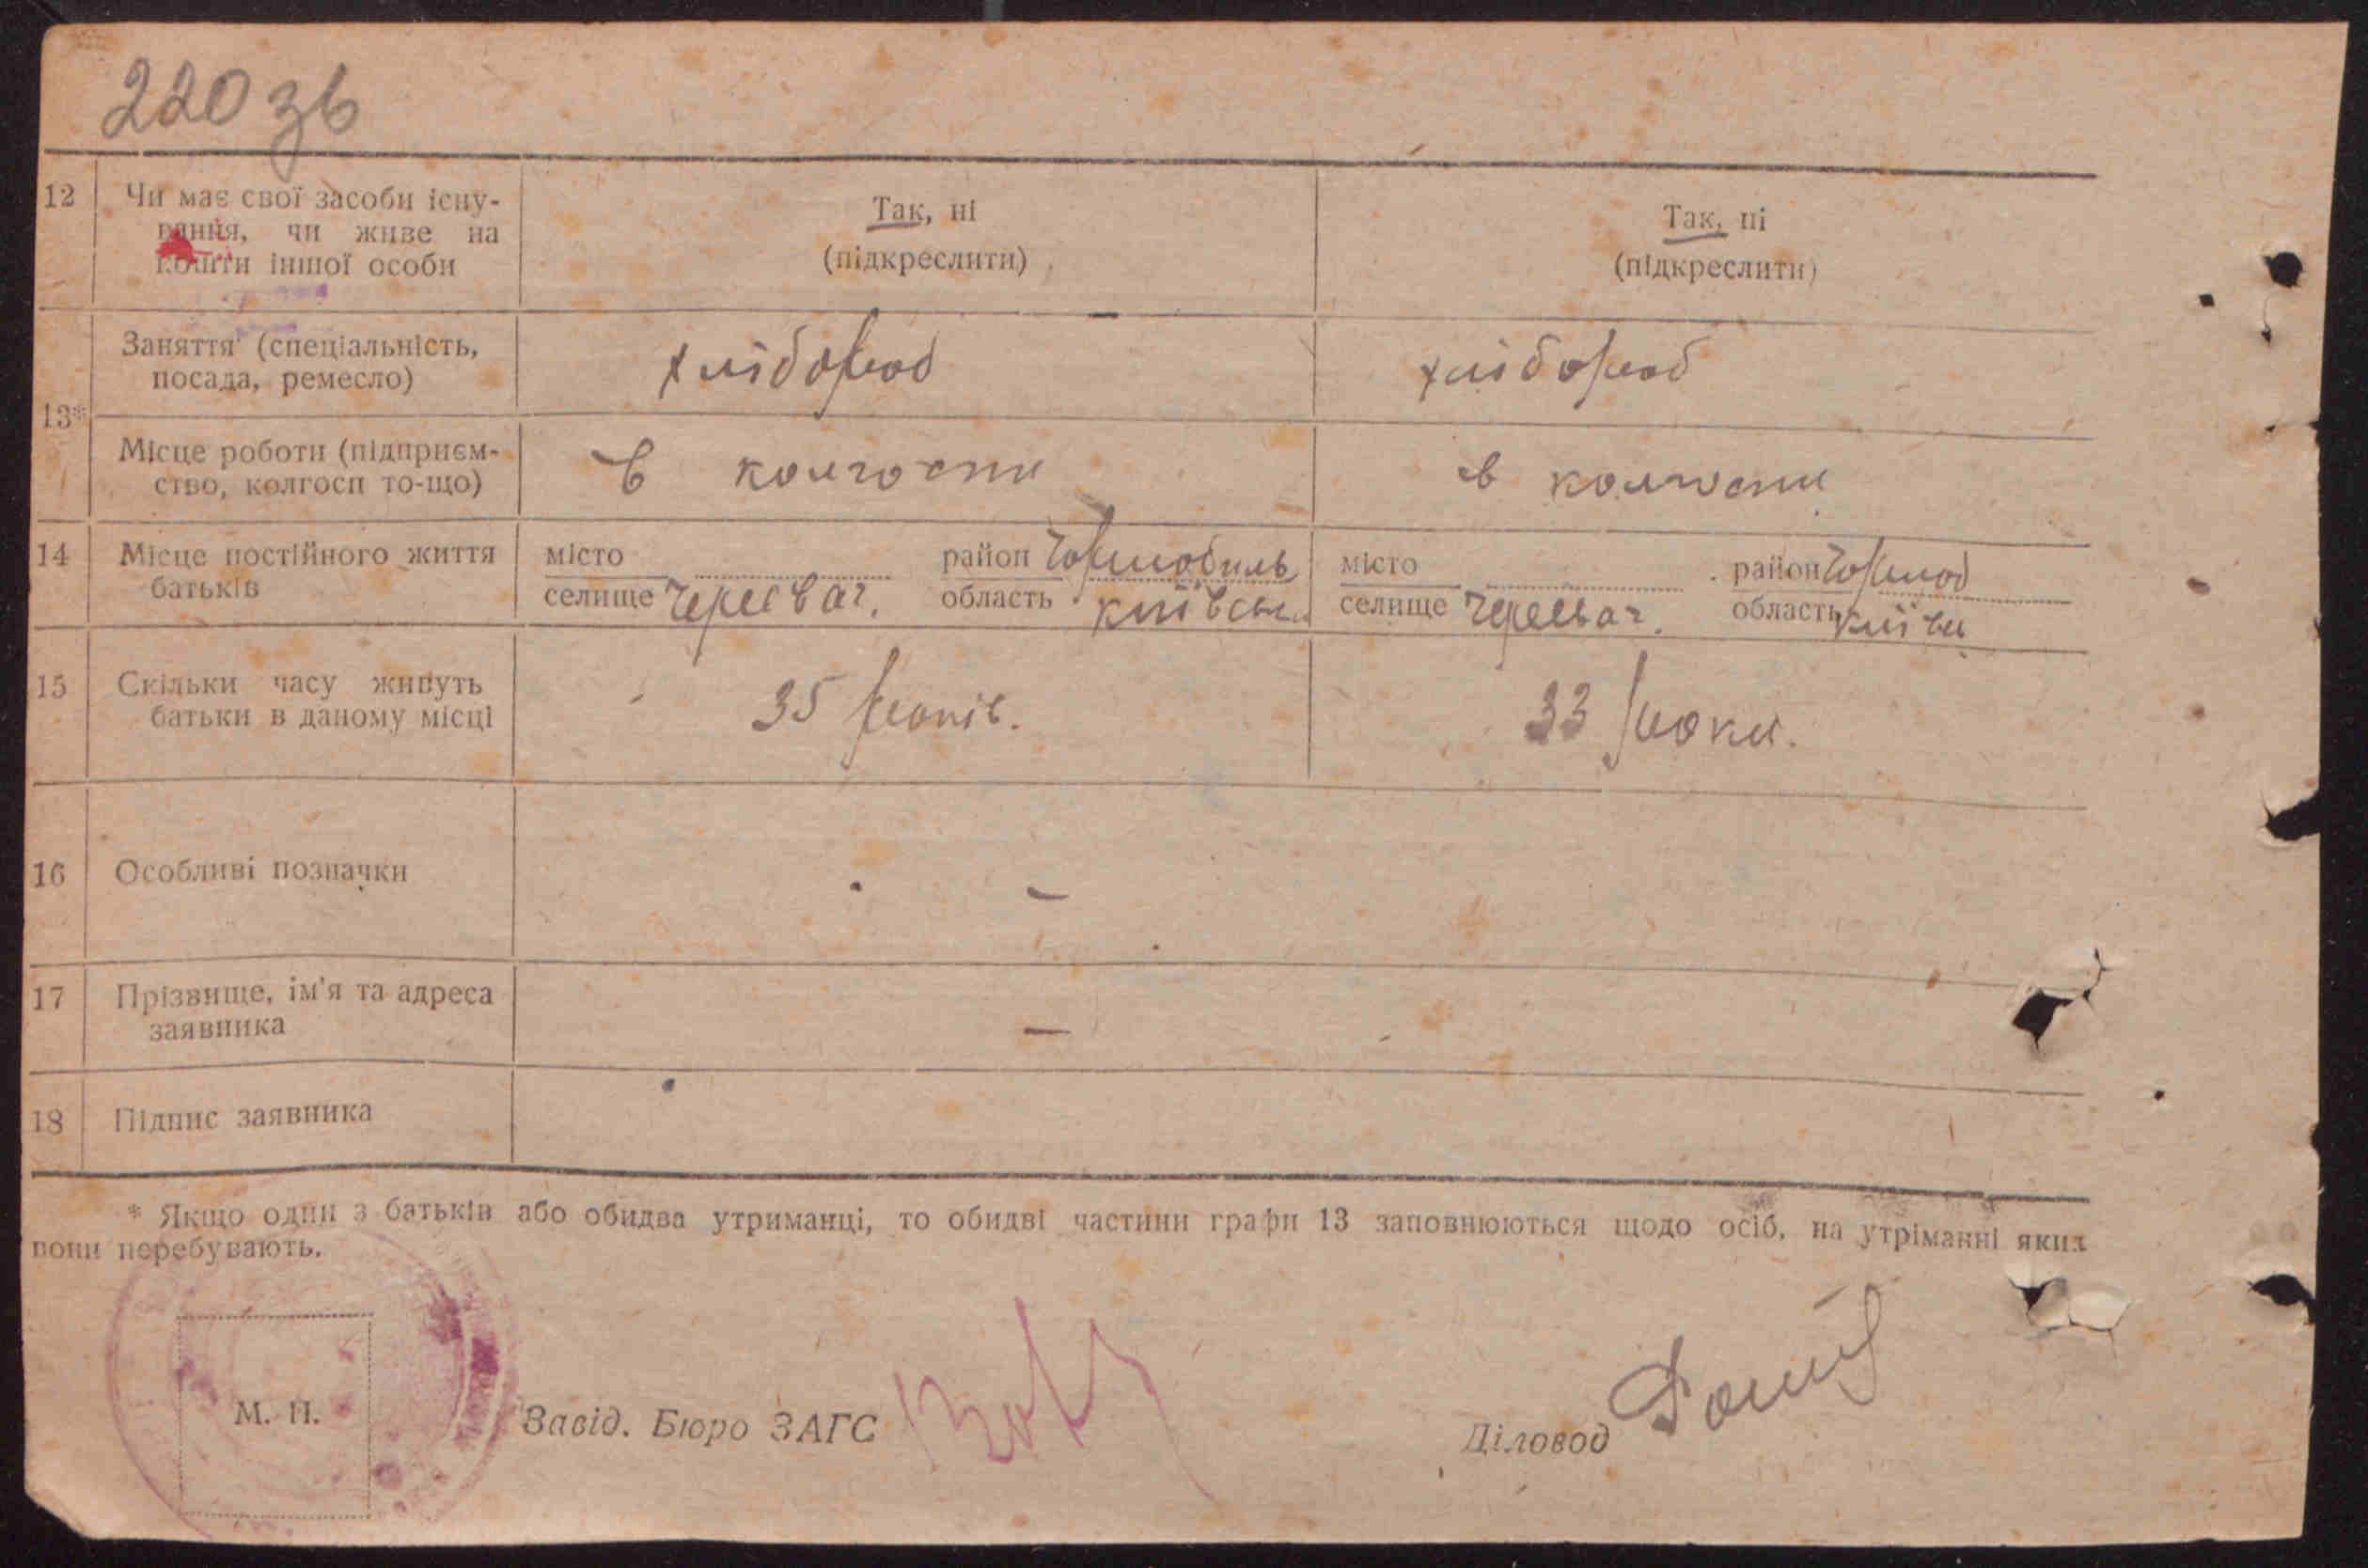 220 зв
12 Чи має свої засоби існу- Так, ні Так, ні
вання, чи живе на (підкреслити) (підкреслити)
кошти іншої особи
13* Заняття (спеціальність, хлібороб хлібороб
посада, ремесло)
Місце роботи (підприєм- в колгоспи в колгоспи
ство, колгосп то-що)
14 Місце постійного життя місто район Чорнобиль місто район Чорноб
батьків селище Черевач. область київськ селище Черевач. область київ
15 Скільки часу живуть 35 років. 33 роки.
батьки в даному місці
16 Особливі позначки –
17 Прізвище, ім'я та адреса –
заявника
18 Підпис заявника
* Якщо один з батьків або обидва утриманці, то обидві частини графи 13 заповнюються щодо осіб, на утріманні яких
вони перебувають.
М. П. Завід. Бюро ЗАГС Діловод